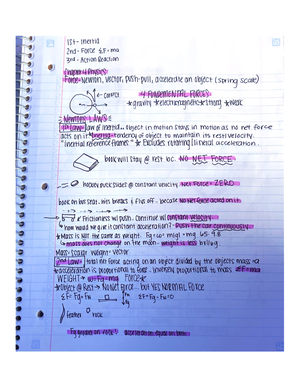 1st - Inertia
2nd - Force ΣF = ma
3rd - Action Reaction
Chapter 4 Physics
Force - Newton, vector, push-pull, accelerate an object (spring scale)
4 FUNDAMENTAL FORCES
* gravity * electromagnetic * strong * weak
3 Newtons LAWS
1st Law - law of inertia... Object in motion stays in motion as no net force
acts on it. Inertia - tendency of object to maintain its rest/velocity.
"Inertial reference frames" * Excludes rotating/lineal acceleration...
book will stay @ rest b/c NO NET FORCE
hockey puck slides @ constant velocity. Net Force = ZERO
book on bus seat. Hits breaks & flies off - because no Net Force acted on it
Frictionless will push. Continue w/ constant velocity
* how would we give it constant acceleration? Push the car continuously
* Mass is NOT the same as weight. Fg = w = mg
* mass does not change on the moon. Weight is less b/c
Mass - Scalar Weight - Vector
2nd Law total net force acting on an object divided by the objects mass = a
* acceleration is proportional to force. inversely proportional to mass ΣF = ma
WEIGHT → w = Fg = mg Force
* Object @ Rest → No Net Force... but YES NORMAL FORCE
feather
rock